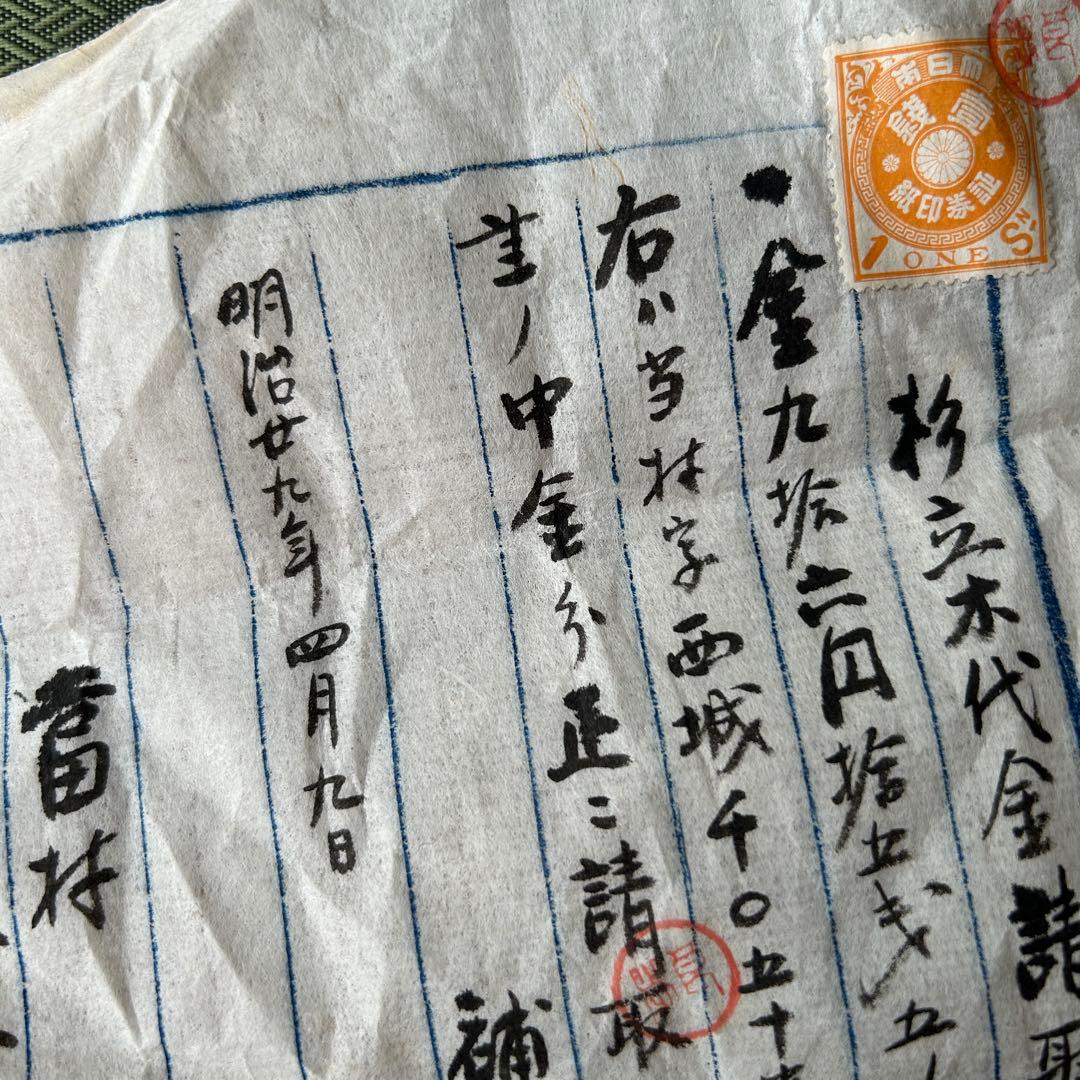 大日本帝國
壹錢
證券印紙
1 ONE Sⁿ
杉立木代金請取
金九拾六円拾五戋五
右ハ当村字西城千〇五十
ノ中金分正ニ請取
補
明治廿九年四月九日
當村